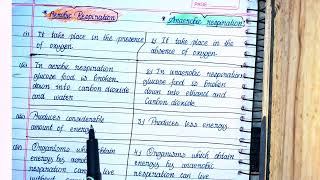 PAGE
Aerobic Respiration
Anaerobic Respiration
(i) It take place in the presence
of oxygen.
1) It take place in the
absence of oxygen.
(ii) In aerobic respiration
glucose food is broken
down into carbon dioxide
and water
2) In anaerobic respiration
glucose food is broken
down into ethanol and
Carbon dioxide.
(iii) Produces considerable
amount of energy
3) Produces less energy.
(iv) Organisms which obtain
energy by aerobic
respiration can
live
4) Organisms which obtain
energy by anaerobic
respiration can live